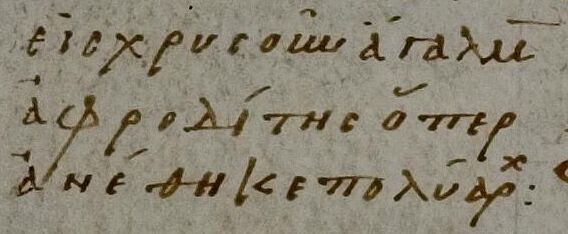 εἰς χρυσοῦν ἄγαλμ
ἀφροδίτης ὅπερ
ἀνέθηκε πολύαρχ: